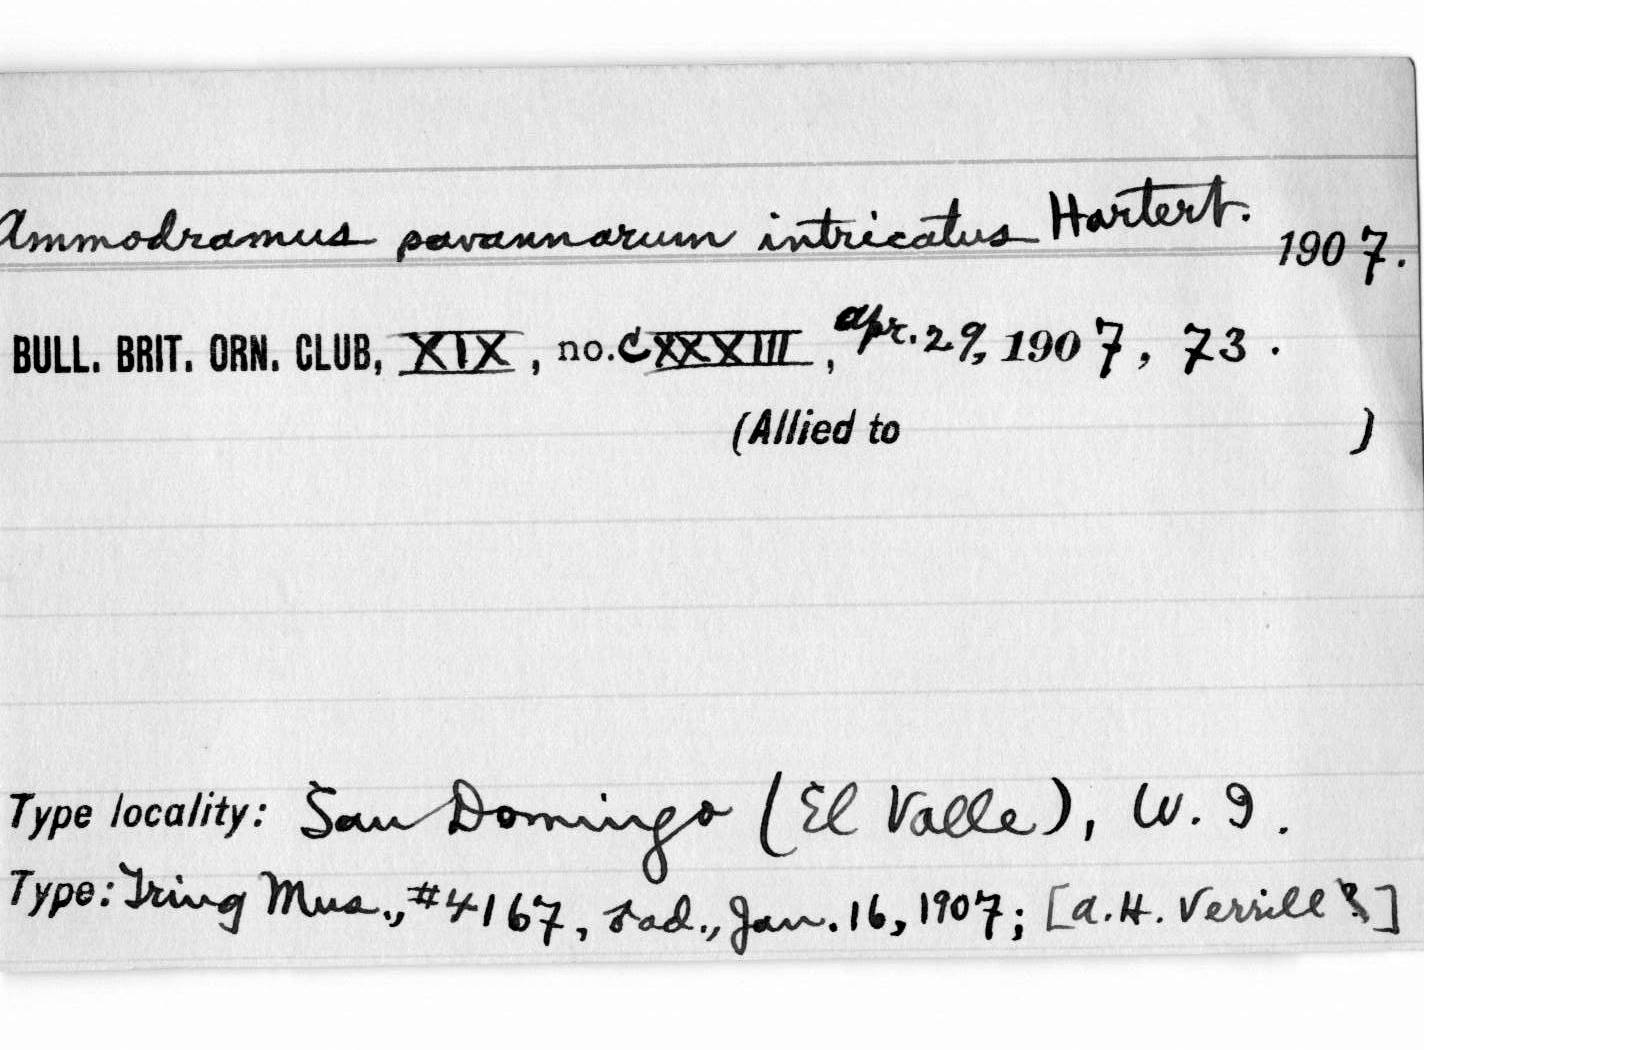 Ammodramus savannarum intricatus Hartert. 1907.
BULL. BRIT. ORN. CLUB, XIX, no. CXXXIII, Apr. 29, 1907, 73.
(Allied to )
Type locality: San Domingo (El Valle), W. I.
Type: Tring Mus., #4167, ad., Jan. 16, 1907; [A. H. Verrill]